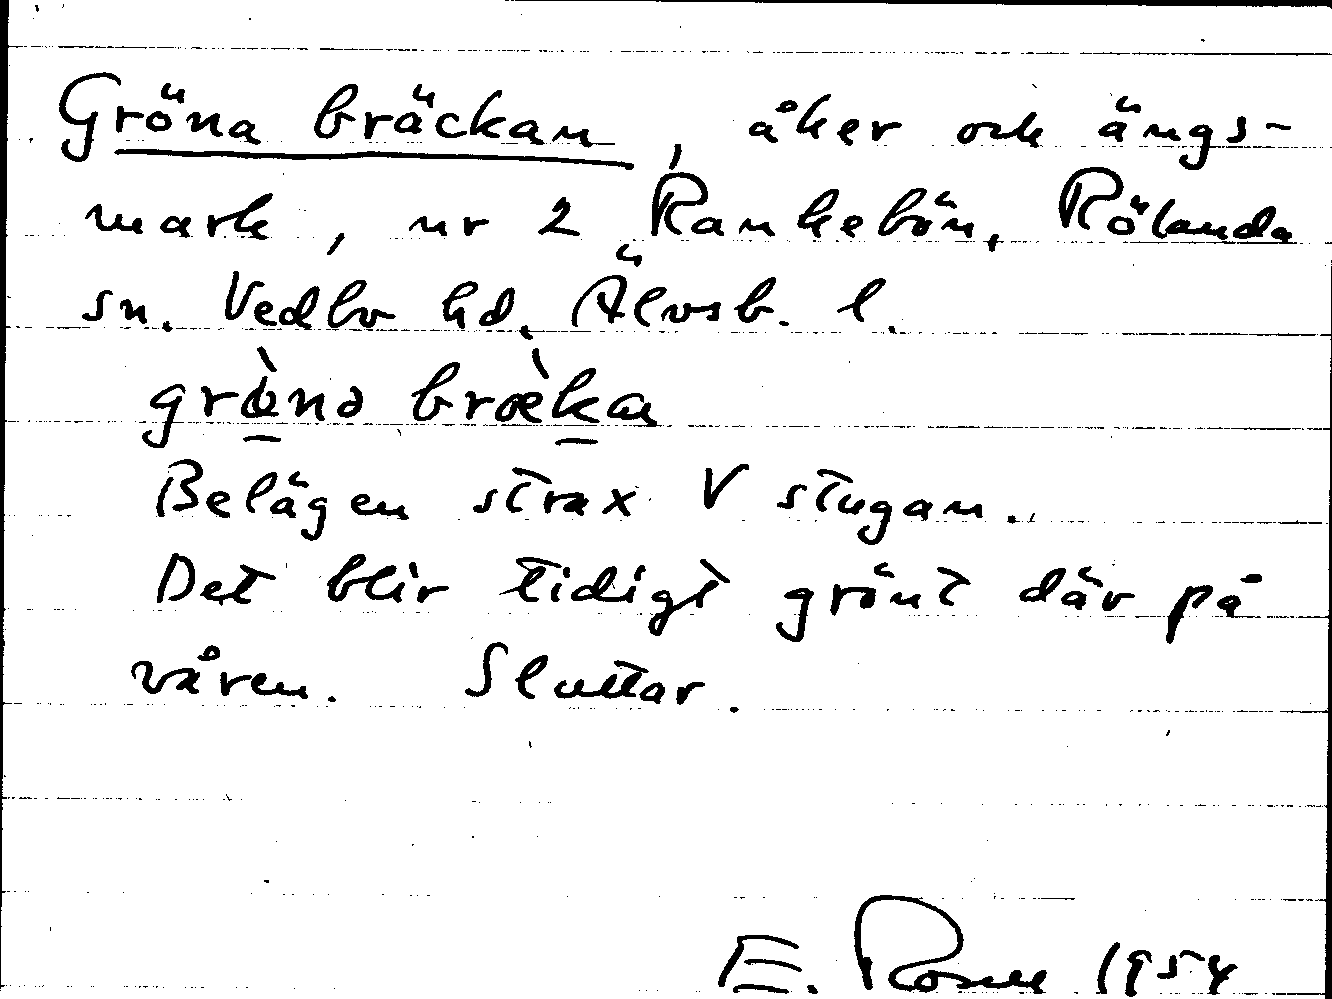 Gröna bräckan, åker och ängs-
mark, nr 2 Rankebön, Rölanda
sn. Vedbo hd. Älvsb. l.
bræ̀ka
Belägen strax V stugan.
Det blir tidigt grönt där på
våren. Sluttar.
E. 1954